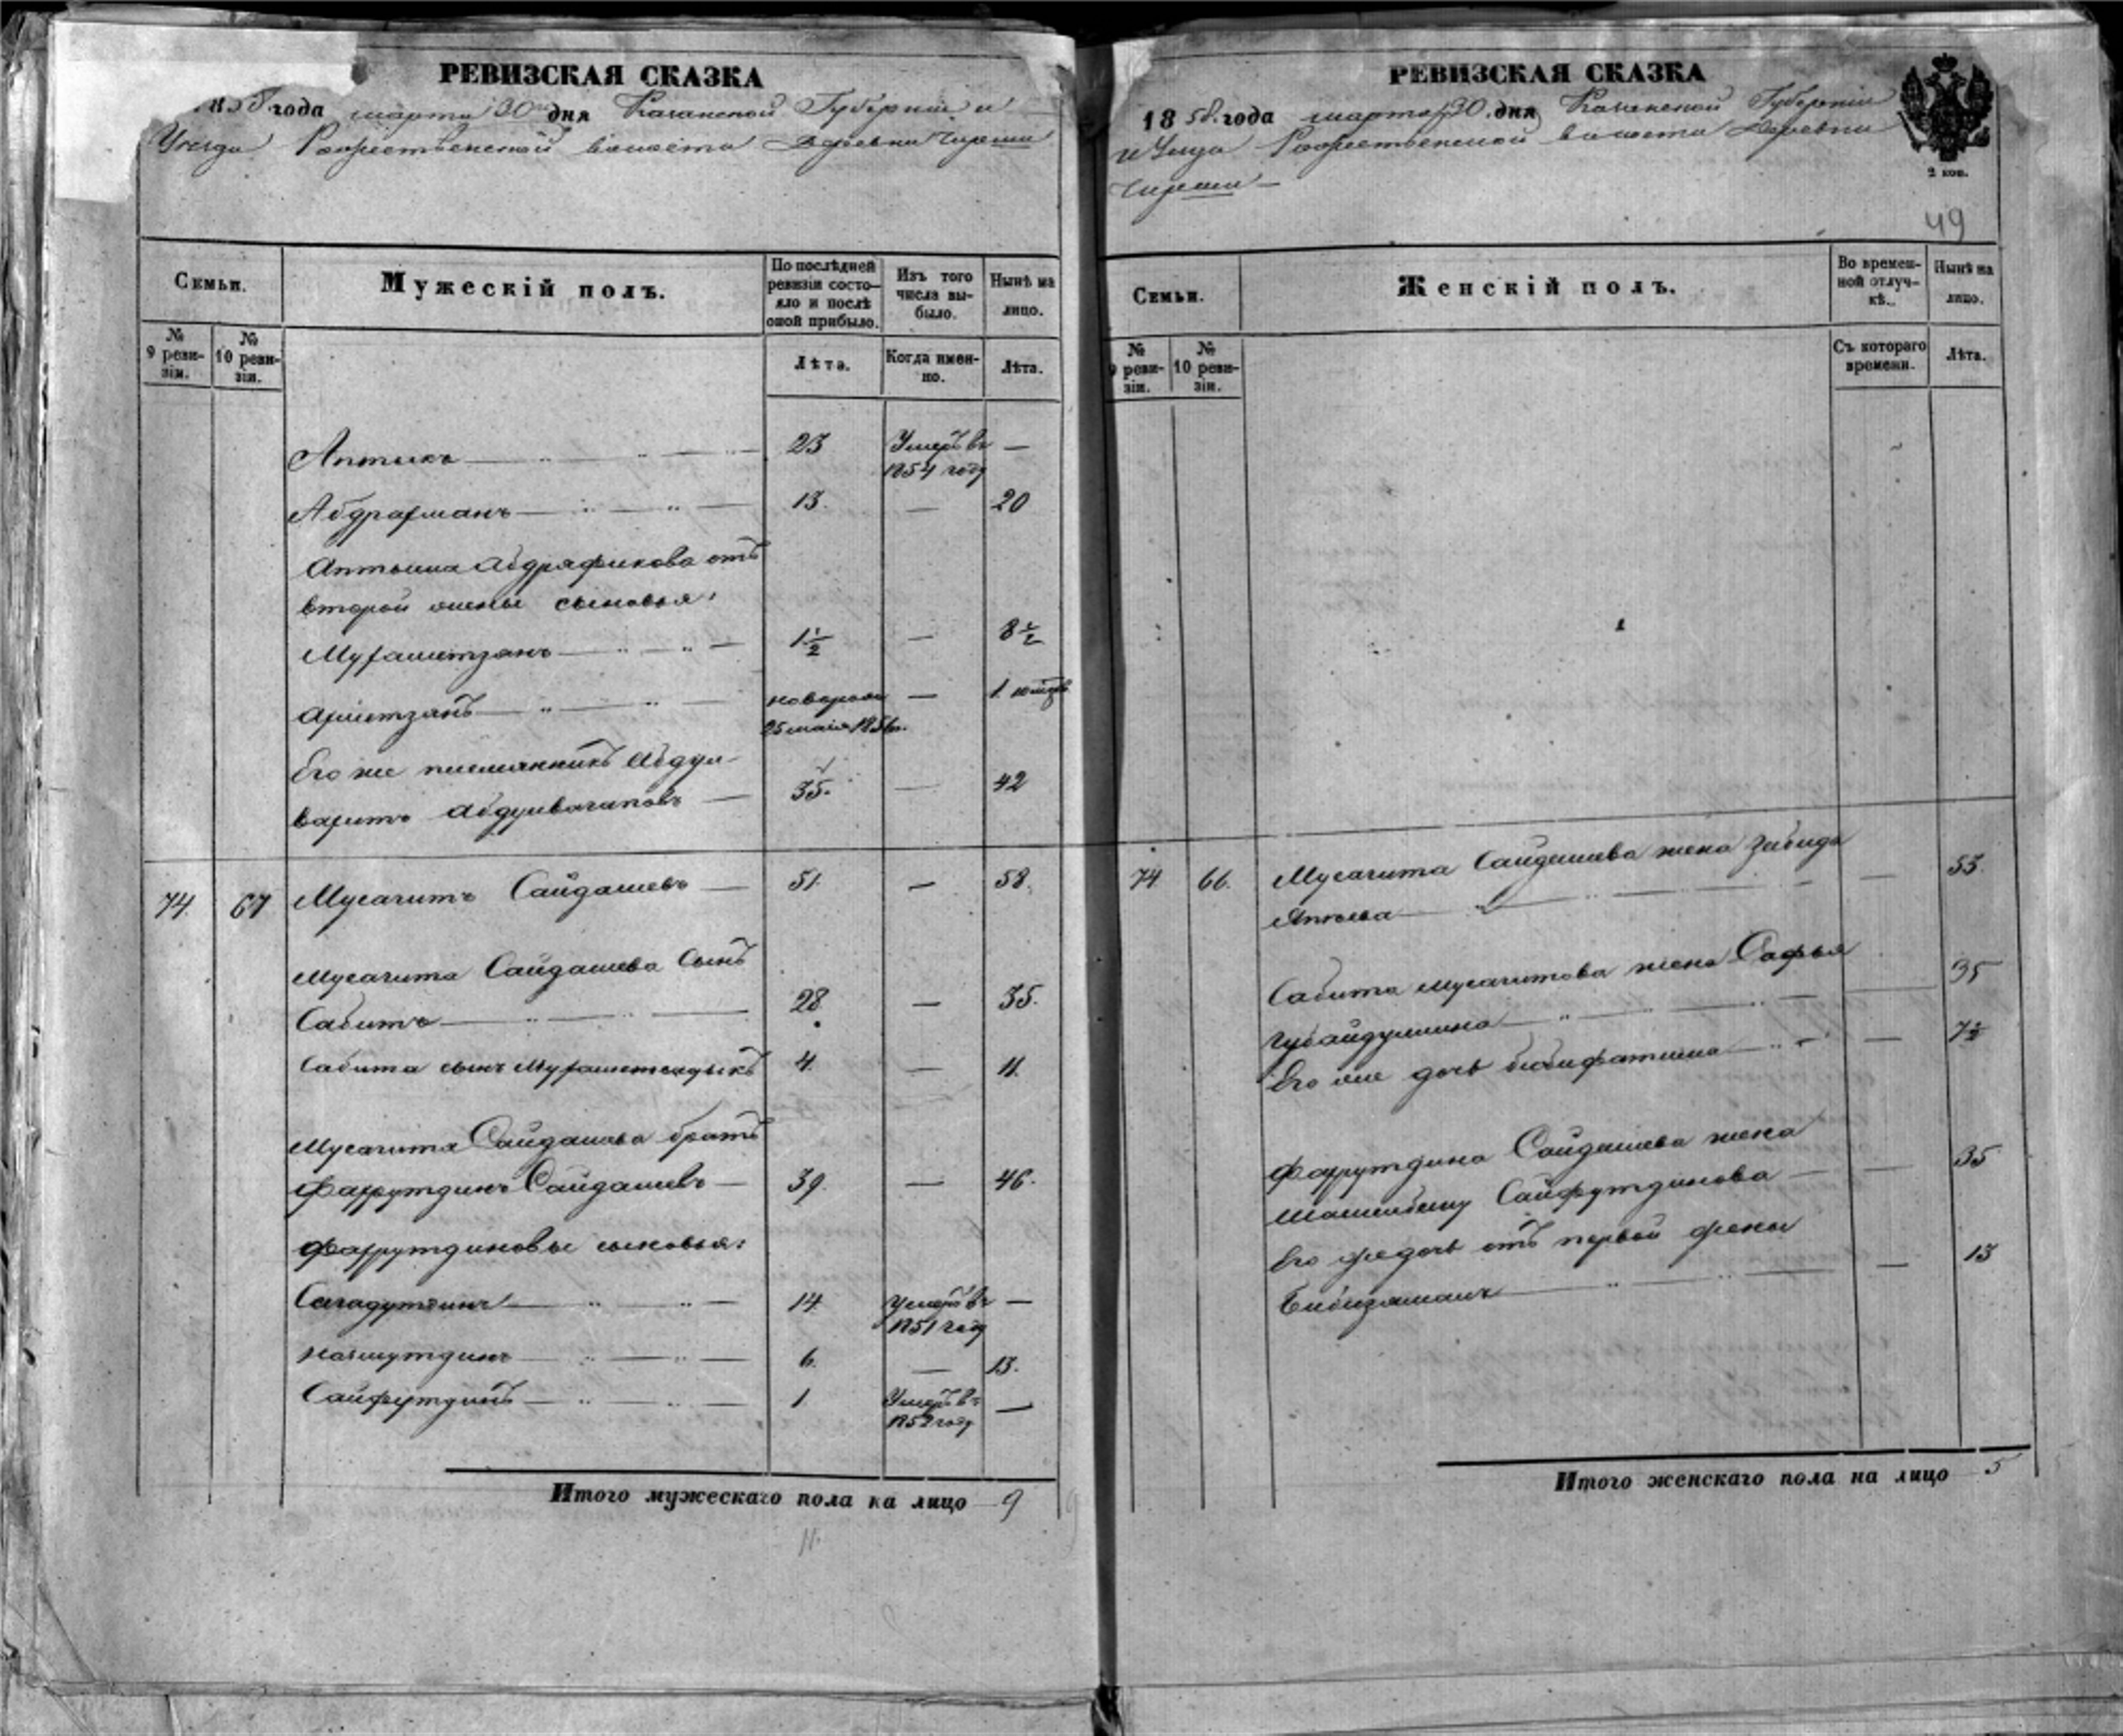 РЕВИЗСКАЯ СКАЗКА
1858 года марта 30 дня Казанской Губернiи и
Уезда Рождественской волости Деревни Чирши
Семьи.
Мужескiй полъ.
По послѣдней ревизiи состояло и послѣ оной прибыло.
Изъ того числа выбыло.
Нынѣ на лицо.
№ 9 ревизiи.
№ 10 ревизiи.
Лѣта.
Когда именно.
Лѣта.
Аптыкъ 23 Умеръ въ 1854 году —
Абдрахманъ 13. — 20
Аптыша Абдряфикова отъ
второй жены сыновья:
Мухаметзянъ 1 1/2 — 8 1/2
Ахметзянъ новорож 25 маiя — 1
Его же племянникъ Абдул-
варитъ Абдулвагаповъ 35. — 42
74. 67 Мусагитъ Сайдашевъ 51. — 58.
Мусагита Сайдашева Сынъ
Сабитъ 28 — 35.
Сабита сынъ Мухаметсадыкъ 4. — 11.
Мусагита Сайдашева братъ
Фахрутдинъ Сайдашевъ 39. — 46.
Фахрутдиновы сыновья:
Сагадутдинъ 14 умеръ въ 1851 году —
Назмутдинъ 6. — 13.
Сайфутдинъ 1 Умеръ въ 1852 году —
Итого мужескаго пола на лицо 9
РЕВИЗСКАЯ СКАЗКА
1858. года марта 30 дня Казанской Губернiи
и Уезда Рождественской волости Деревни
Чирши —
2 коп.
49
Семьи.
Женскiй полъ.
Во временной отлучкѣ.
Нынѣ на лицо.
№ 9 ревизiи.
№ 10 ревизiи.
Съ котораго времени.
Лѣта.
74 66. Мусагита Сайдашева жена Забида
Апаева — 53.
Сабита Мусагитова жена Сафья
Губайдуллина — 35
Его же дочь Бибифатима — 7 1/2
Фахрутдина Сайдашева жена
Сайфутдинова — 35
Его же дочь отъ первой жены
Бибизямалъ — 13
Итого женскаго пола на лицо 5